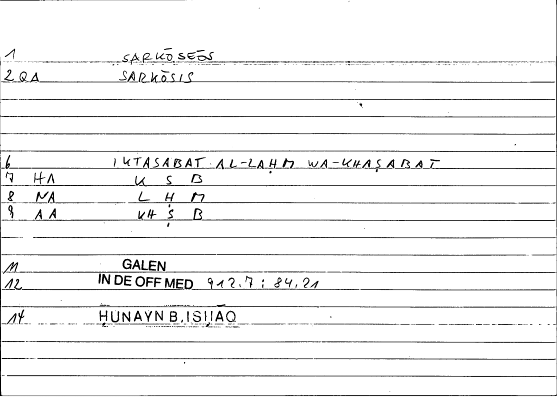 1 SARKŌSEŌS
2 QA SARKŌSIS
6 IKTASABAT AL-LAḤM WA-KHAṢABAT
7 HA K S B
8 NA L Ḥ M
9 AA KH Ṣ B
11 GALEN
12 IN DE OFF MED 912.7 : 84.21
14 ḤUNAYN B. ISḤĀQ